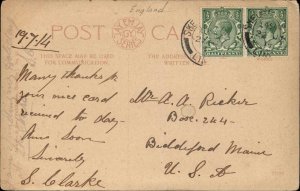 England
POST CARD
THIS SPACE MAY BE USED
FOR COMMUNICATION.
THE ADDRESS
19/7/14
Many thanks
your nice card
received to-day
Sincerely
S. Clarke
Mr A. A. Ricker
Box 244
Biddeford Maine
U. S. A